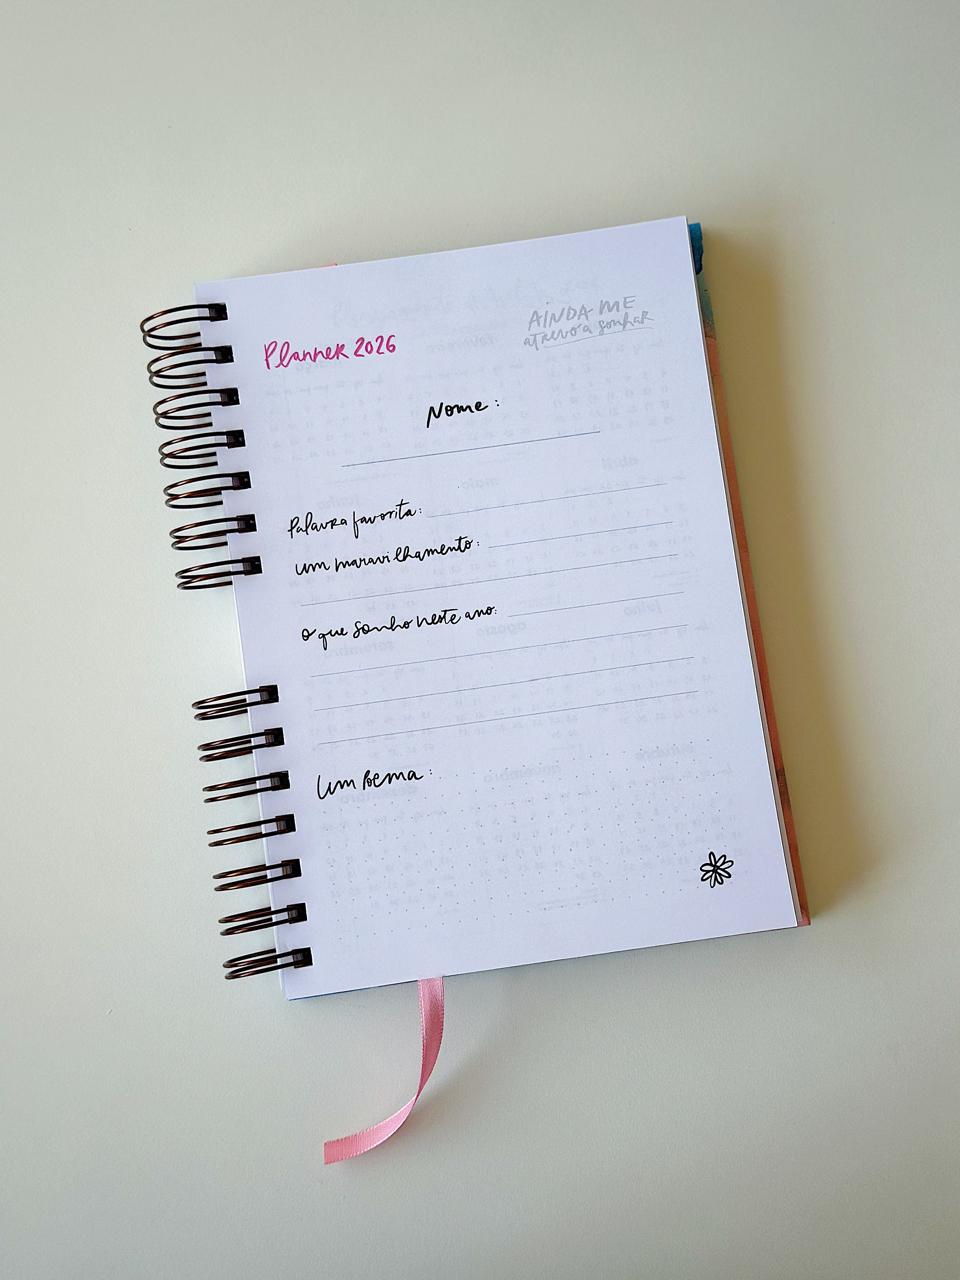 AINDA ME
atrevo a sonhar
Planner 2026
Nome:
Palavra favorita:
um maravilhamento:
o que sonho neste ano:
Um poema: